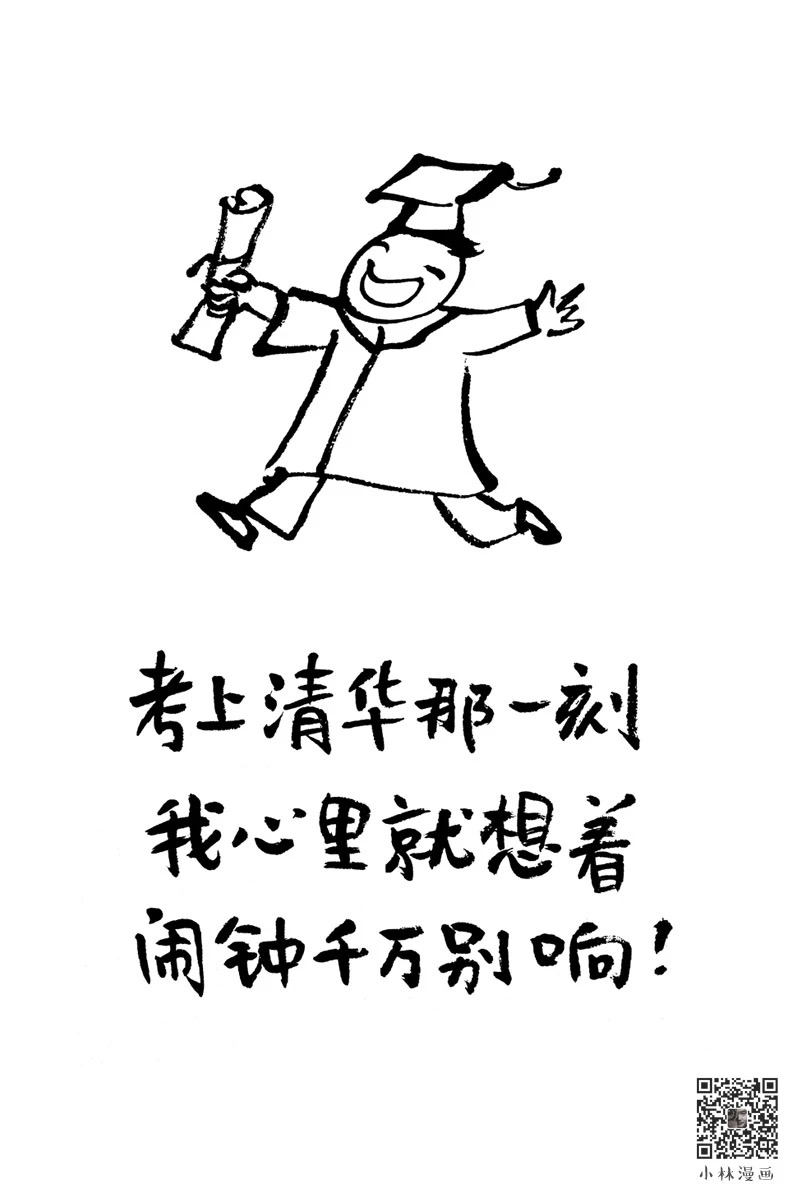 考上清华那一刻
我心里就想着
闹钟千万别响！
小林漫画